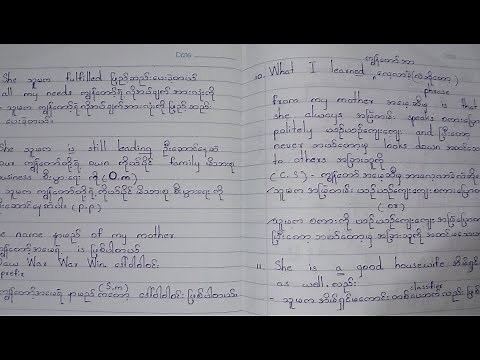 Date
She သူမက fulfilled ဖြည့်ဆည်းပေးခဲ့တယ်
all my needs ကျွန်တော်ရဲ့ လိုအပ်ချက်အားလုံးကို
- သူမက ကျွန်တော်ရဲ့လိုအပ်ချက်အားလုံးကို ဖြည့်ဆည်း
ပေးခဲ့တယ်။
She သူမက is still leading ဦးဆောင်နေဆဲ
our ကျွန်တော်တို့ရဲ့ own ကိုယ်ပိုင် family မိသားစု
business စီးပွားရေး ကို (O.m)
သူမက ကျွန်တော်တို့ရဲ့ ကိုယ်ပိုင် မိသားစု စီးပွားရေး ကို
ဦးဆောင်နေဆဲပါ။ (p.p)
name နာမည် of my mother
ကျွန်တော့်အမေရဲ့ is ဖြစ်ပါတယ်
Daw War War Win ဒေါ်ဝါဝါဝင်း
prefix
(S.m)
ကျွန်တော့်အမေရဲ့ နာမည် ကတော့ ဒေါ်ဝါဝါဝင်း ဖြစ်ပါတယ်။
ကျွန်တော်ဘာ
10. What I learned
from my mother အမေဆီမှ is that
she always အမြဲတမ်း speaks
politely ယဉ်ယဉ်ကျေးကျေး and ပြီးတော့
never ဘယ်တော့မှ looks down
to others အခြားသူကို
(C.S) - ကျွန်တော် အမေ့ဆီမှ
- သူမက အမြဲတမ်း ယဉ်ယဉ်ကျေးကျေး
(or)
သူမက စကားကို ယဉ်ယဉ်ကျေးကျေး
ပြီးတော့ ဘယ်တော့မှ အခြားသူရဲ့
11. She is a good housewife အိမ်ရှင်မ
as well. လည်း
classifier
- သူမက အိမ်ရှင်မကောင်း တစ်ယောက် လည်း